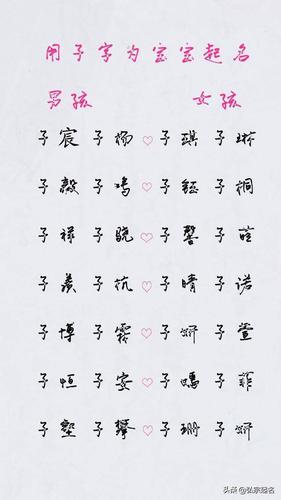 用子字为宝宝起名
男孩 女孩
子宸 子杨 ♡ 子琪 子琳
子毅 子鸣 ♡ 子钰 子桐
子祥 子骁 ♡ 子馨 子萱
子羡 子航 ♡ 子晴 子诺
子博 子霖 ♡ 子妍 子萱
子恒 子安 ♡ 子嫣 子菲
子墅 子攀 ♡ 子珊 子妍
头条@弘宗起名